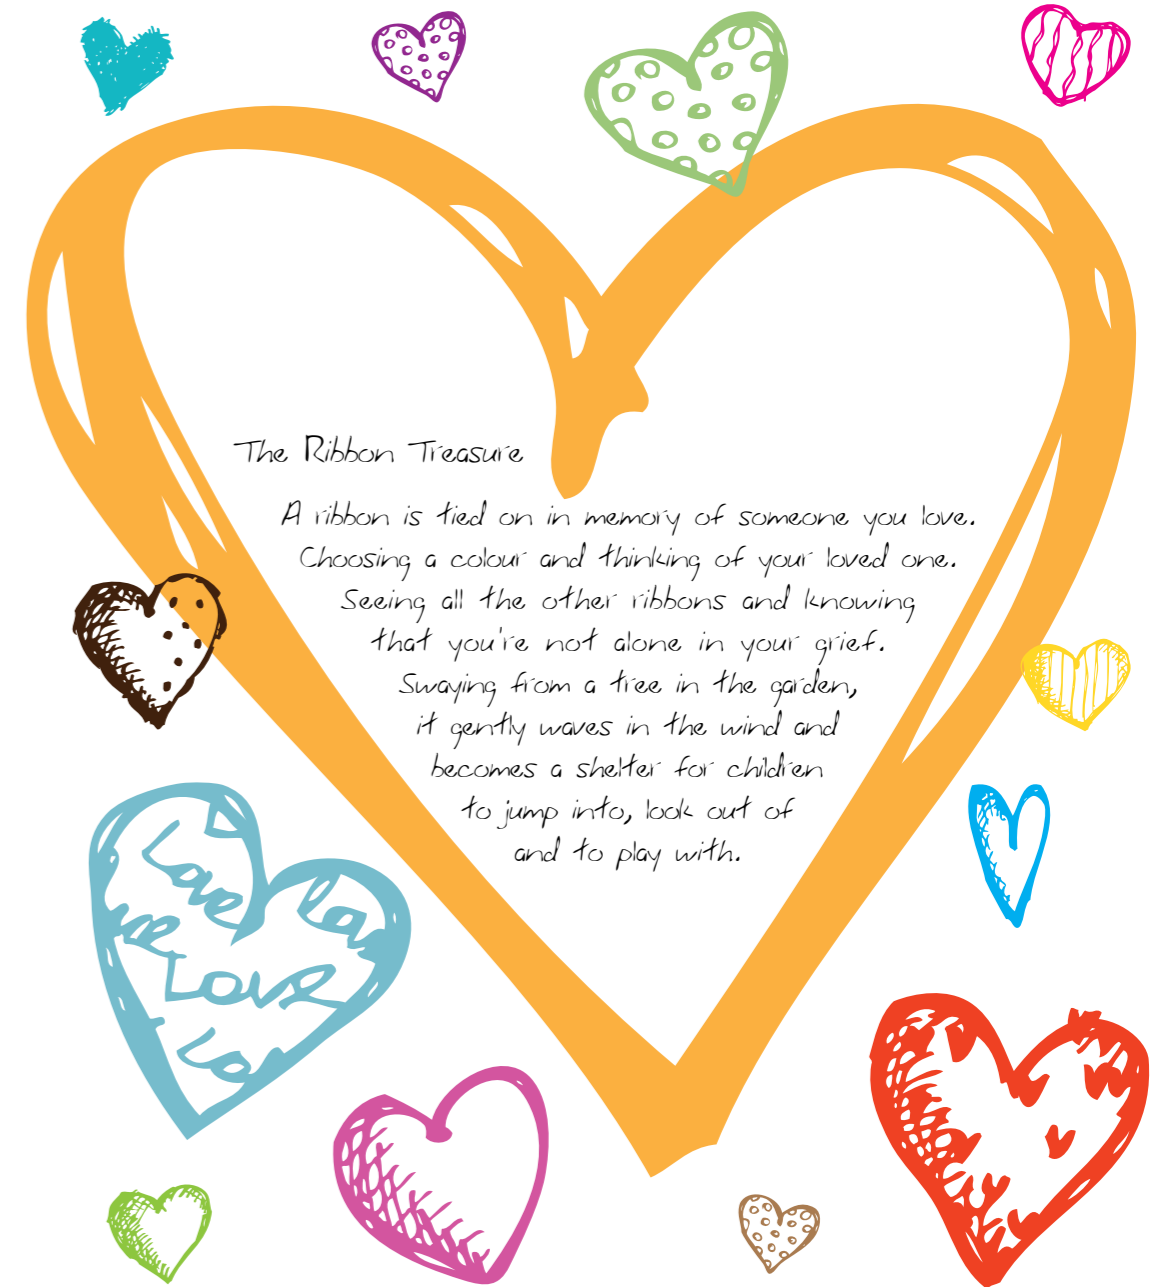 The Ribbon Treasure
A ribbon is tied on in memory of someone you love.
Choosing a colour and thinking of your loved one.
Seeing all the other ribbons and knowing
that you're not alone in your grief.
Swaying from a tree in the garden,
it gently waves in the wind and
becomes a shelter for children
to jump into, look out of
and to play with.
Love
Lov
ve
Love
Lo